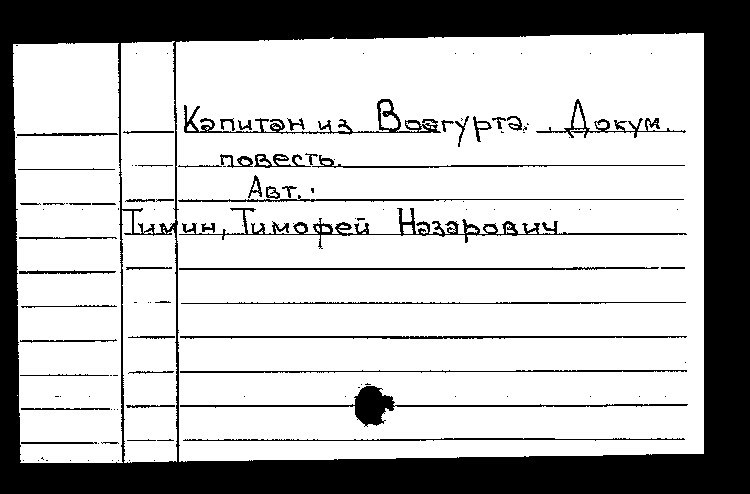 Капитан из Воегурта. Докум.
повесть.
Авт.:
Тимин, Тимофей Назарович.